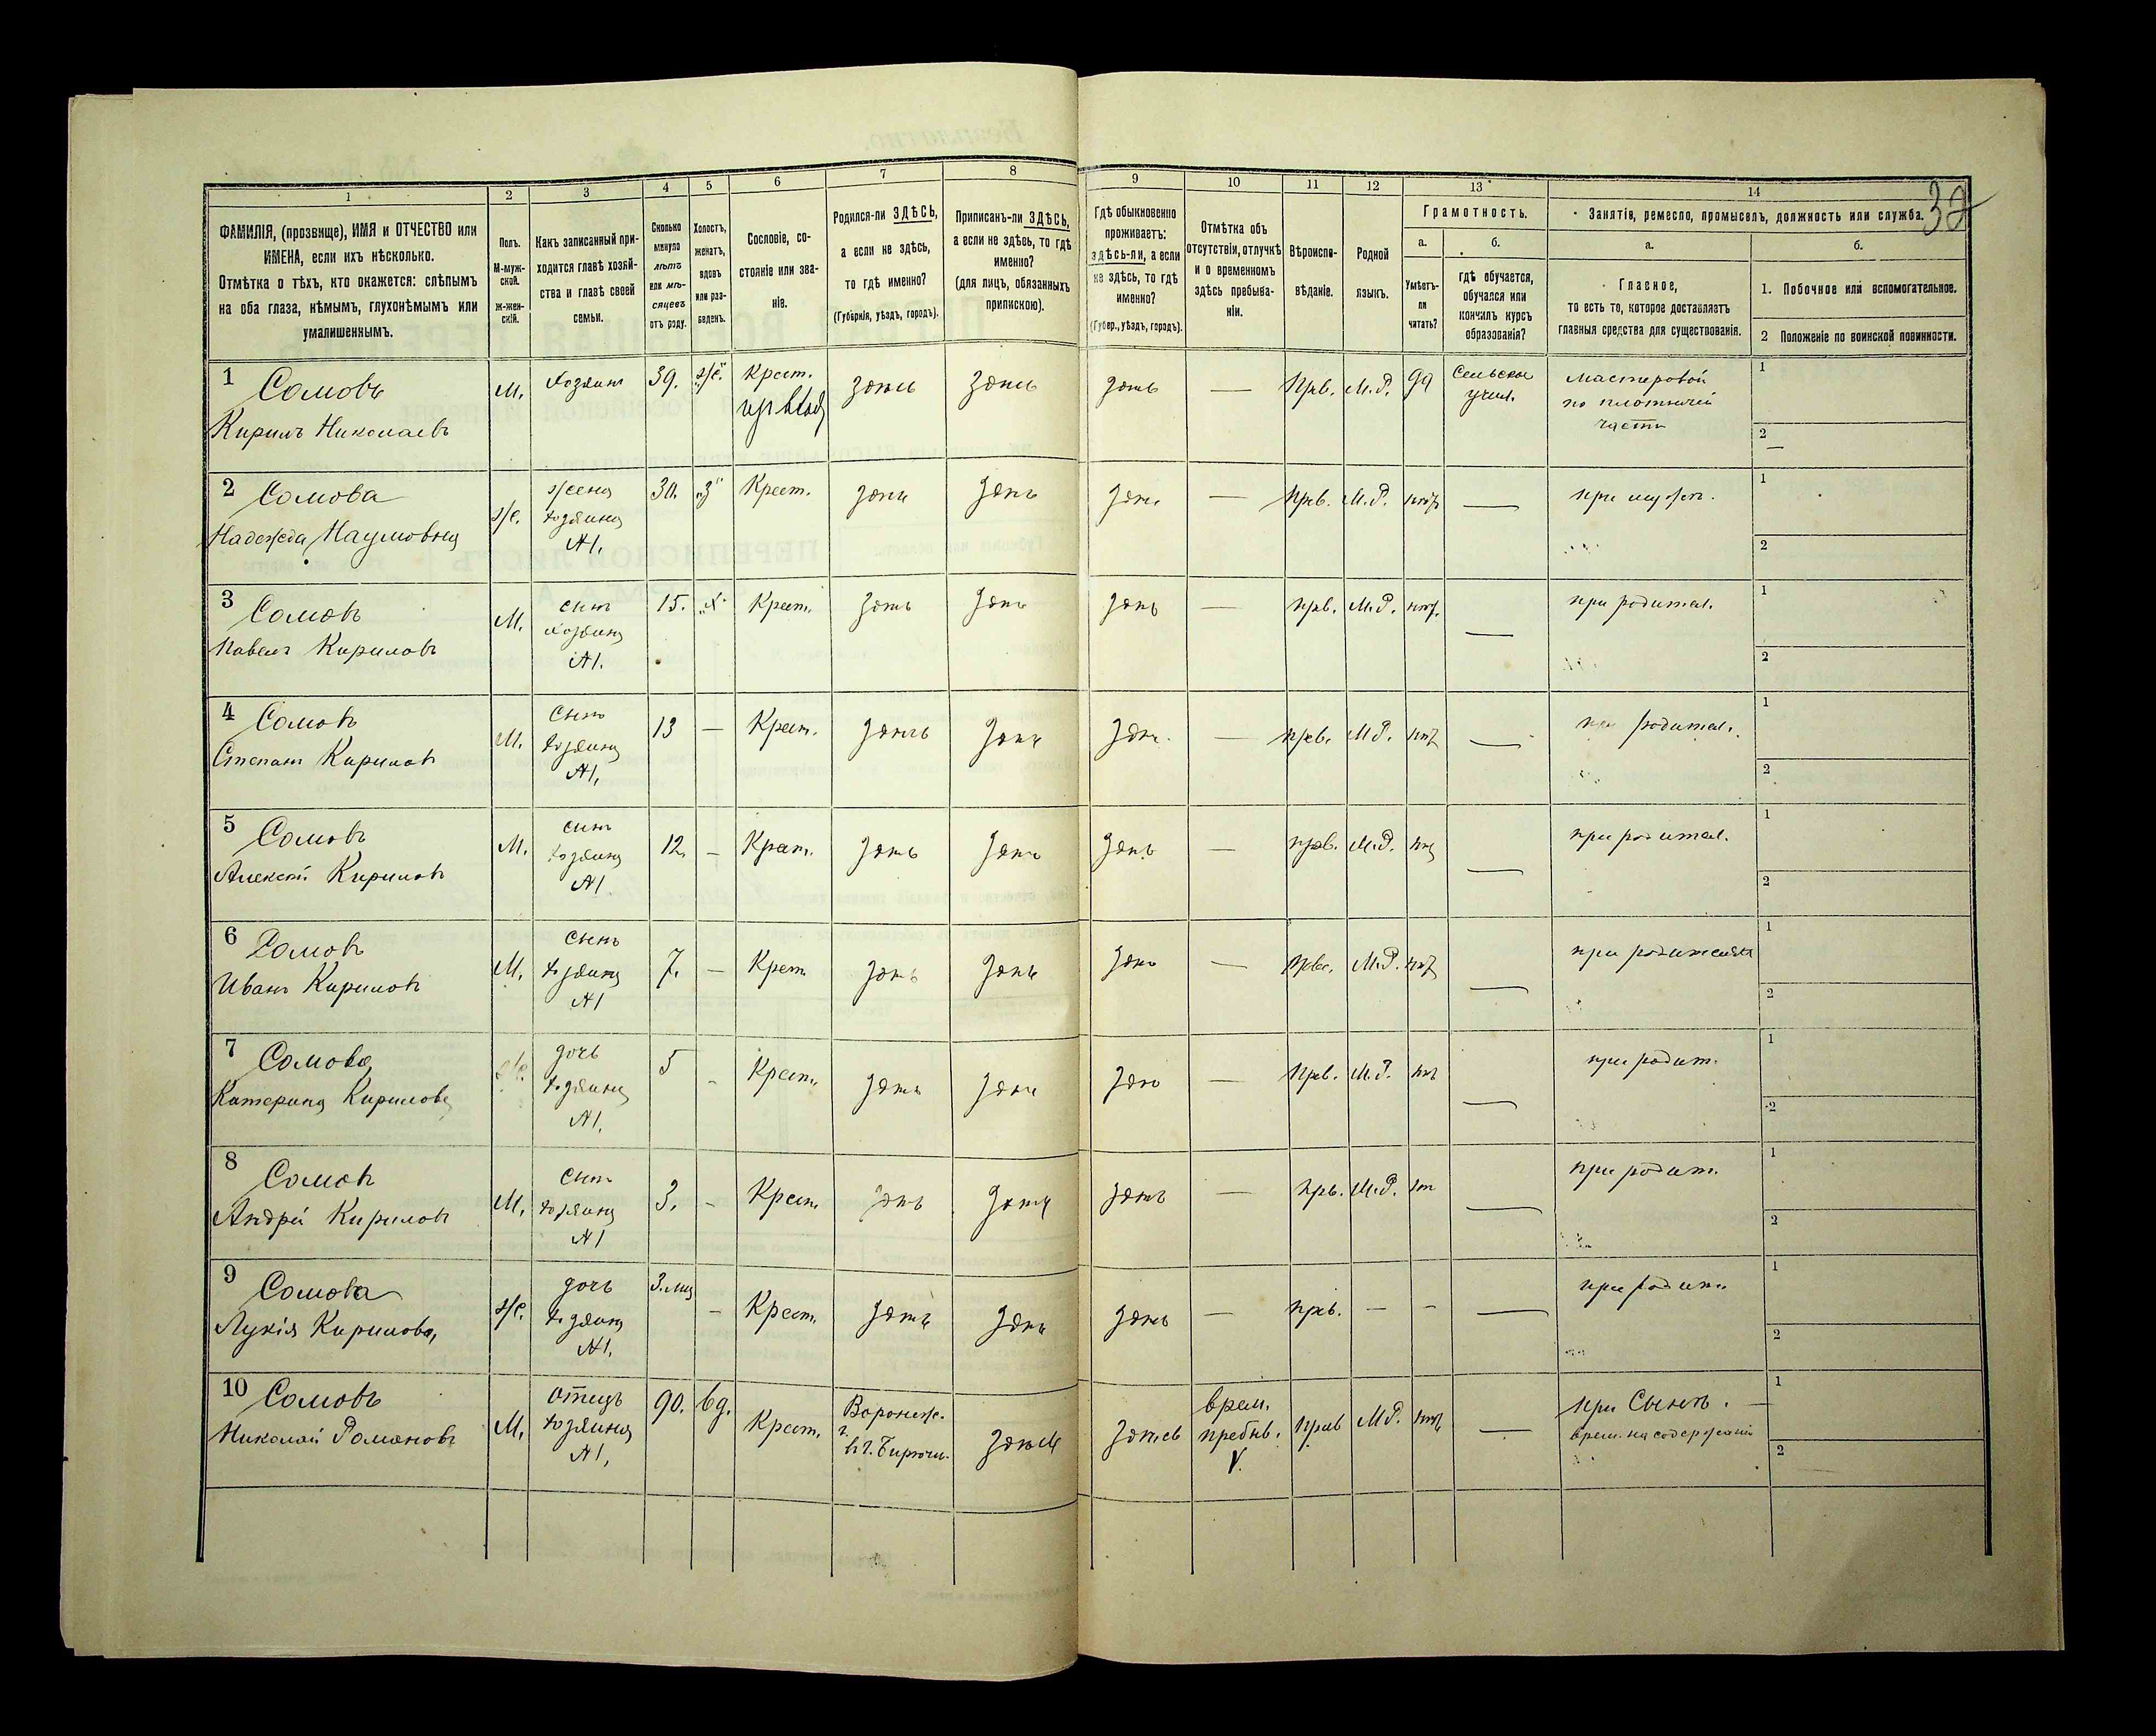 32
1 2 3 4 5 6 7 8 9 10 11 12 13 14
ФАМИЛІЯ, (прозвище), ИМЯ и ОТЧЕСТВО или
ИМЕНА, если ихъ нѣсколько.
Отмѣтка о тѣхъ, кто окажется: слѣпымъ
на оба глаза, нѣмымъ, глухонѣмымъ или
умалишеннымъ.
Полъ.
М-муж-
ской.
ж-жен-
скій.
Какъ записанный при-
ходится главѣ хозяй-
ства и главѣ своей
семьи.
Сколько
минуло
лѣтъ
или мѣ-
сяцевъ
отъ роду.
Холостъ,
женатъ,
вдовъ
или раз-
веденъ.
Сословіе, со-
стояніе или зва-
ніе.
Родился-ли ЗДѢСЬ,
а если не здѣсь,
то гдѣ именно?
(Губернія, уѣздъ, городъ).
Приписанъ-ли ЗДѢСЬ,
а если не здѣсь, то гдѣ
именно?
(для лицъ, обязанныхъ
припискою).
Гдѣ обыкновенно
проживаетъ:
здѣсь-ли, а если
не здѣсь, то гдѣ
именно?
(Губер., уѣздъ, городъ).
Отмѣтка объ
отсутствіи, отлучкѣ
и о временномъ
здѣсь пребыва-
ніи.
Вѣроиспо-
вѣданіе.
Родной
языкъ.
Грамотность.
а.
Умѣетъ-
ли
читать?
б.
гдѣ обучается,
обучался или
кончилъ курсъ
образованія?
Занятія, ремесло, промыселъ, должность или служба.
а.
Главное,
то есть то, которое доставляетъ
главныя средства для существованія.
б.
1. Побочное или вспомогательное.
2 Положеніе по воинской повинности.
1 Сомовъ
Кирилъ Николаевъ
М.
Хозяинъ
39.
"ж."
Крест.
здѣсь
здѣсь
здѣсь
—
Прв.
М.Р.
да
Сельское
учил.
мастеровой
по плотничей
части
1
2 —
2 Сомова
Надежда Наумовна
ж.
жена
хозяина
№1.
30.
"з"
Крест.
здѣсь
здѣсь
здѣсь
—
Прв.
М.Р.
нѣтъ
—
при мужѣ.
1
2
3 Сомовъ
Павелъ Кириловъ
М.
сынъ
хозяина
№1.
15.
"х"
Крест.
здѣсь
здѣсь
здѣсь
—
прв.
М.Р.
нѣт.
—
при родител.
1
2
4 Сомовъ
Степанъ Кириловъ
М.
сынъ
хозяина
№1.
13
—
Крест.
здѣсь
здѣсь
здѣсь
—
прв.
М.Р.
нѣт
—
при родител.
1
2
5 Сомовъ
Алексѣй Кириловъ
М.
сынъ
хозяина
№1
12.
—
Крест.
здѣсь
здѣсь
здѣсь
—
прв.
М.Р.
нѣт
—
при родител.
1
2
6 Сомовъ
Иванъ Кириловъ
М.
сынъ
хозяина
№1
7.
—
Крест
здѣсь
здѣсь
здѣсь
—
прв.
М.Р.
нѣт
—
при родителях
1
2
7 Сомова
Катерина Кирилова
ж.
дочь
хозяина
№1.
5
-
Крест.
здѣсь
здѣсь
здѣсь
—
прв.
М.Р.
нѣт
—
при родит.
1
2
8 Сомовъ
Андрей Кириловъ
М.
сынъ
хозяина
№1
3.
-
Крест.
здѣсь
здѣсь
здѣсь
—
прв.
М.Р.
нѣт
—
при родит.
1
2
9 Сомова
Лукія Кирилова,
ж.
дочь
хозяина
№1.
3.мц
-
Крест.
здѣсь
здѣсь
здѣсь
—
прв.
—
-
—
при родит.
1
2
10 Сомовъ
Николай Романовъ
М.
отецъ
хозяина
№1,
90.
вд.
Крест.
Воронеж.
г.
в г. Бирюч.
здѣсь
здѣсь
врем.
пребыв.
V.
прав
М.Р.
нѣтъ
—
при Сынѣ.
врем. на содержаніи
1 —
2